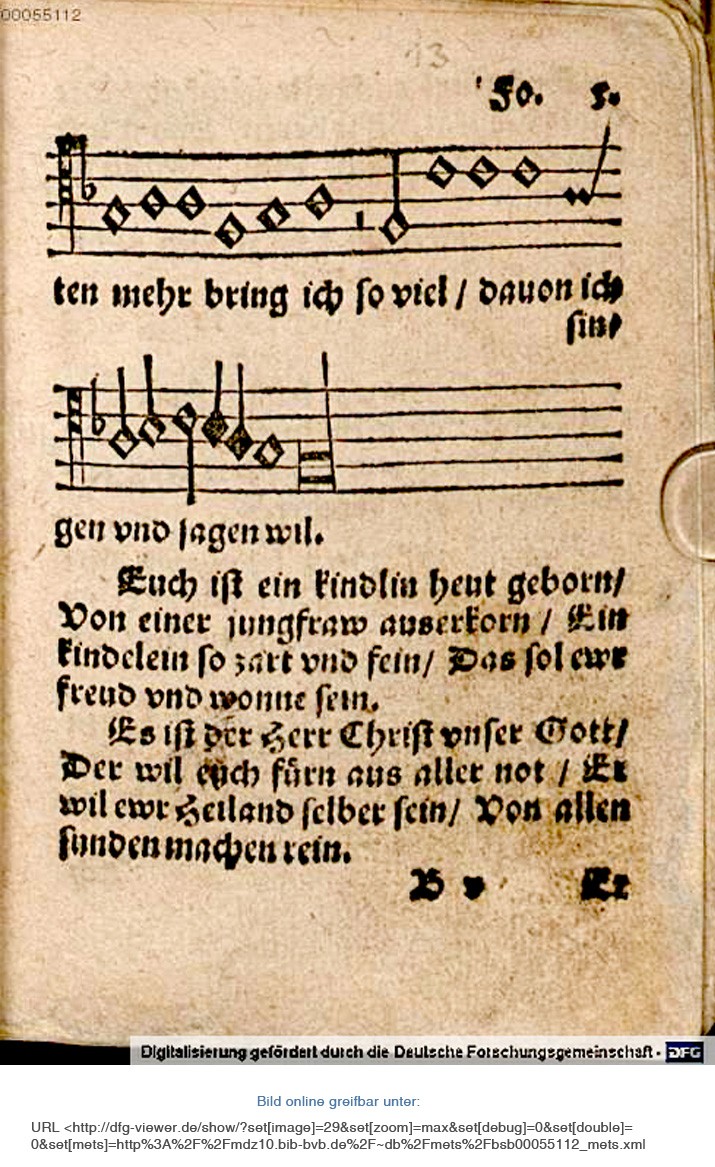 00055112
13
Fo. 5.
ten mehr bring ich so viel / dauon ich
sin/
gen vnd sagen wil.
Euch ist ein kindlin heut geborn/
Von einer jungfraw auserkorn / Ein
kindelein so zart vnd fein/ Das sol ewr
freud vnd wonne sein.
Es ist der Herr Christ vnser Gott/
Der wil euch fürn aus aller not / Er
wil ewr Heiland selber sein/ Von allen
sunden machen rein.
B v Er
Digitalisierung gefördert durch die Deutsche Forschungsgemeinschaft - DFG
Bild online greifbar unter:
URL <http://dfg-viewer.de/show/?set[image]=29&set[zoom]=max&set[debug]=0&set[double]=
0&set[mets]=http%3A%2F%2Fmdz10.bib-bvb.de%2F~db%2Fmets%2Fbsb00055112_mets.xml